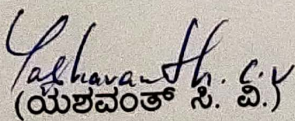 Yashavanth. C.V
(ಯಶವಂತ್ ಸಿ. ವಿ.)